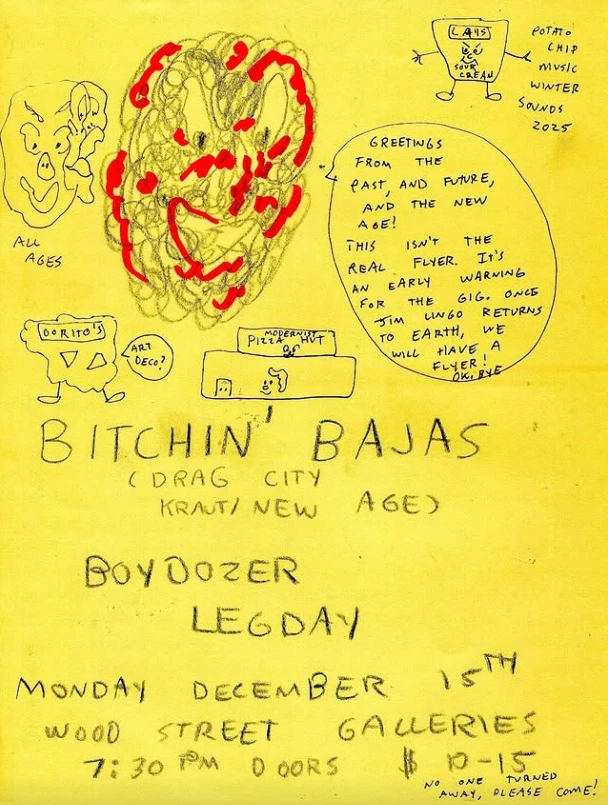 LAYS
SOUR
CREAM
POTATO
CHIP
MUSIC
WINTER
SOUNDS
2025
GREETINGS
FROM THE
PAST, AND FUTURE,
AND THE NEW
AGE!
THIS ISN'T THE
REAL FLYER. IT'S
AN EARLY WARNING
FOR THE GIG. ONCE
JIM LINGO RETURNS
TO EARTH, WE
WILL HAVE A
FLYER!
OK, BYE
ALL
AGES
DORITO'S
ART
DECO?
MODERNIST
PIZZA HUT
BITCHIN' BAJAS
(DRAG CITY
KRAUT/NEW AGE)
BOYDOZER
LEGDAY
MONDAY DECEMBER 15TH
WOOD STREET GALLERIES
7:30 PM DOORS $10-15
NO ONE TURNED
AWAY, PLEASE COME!